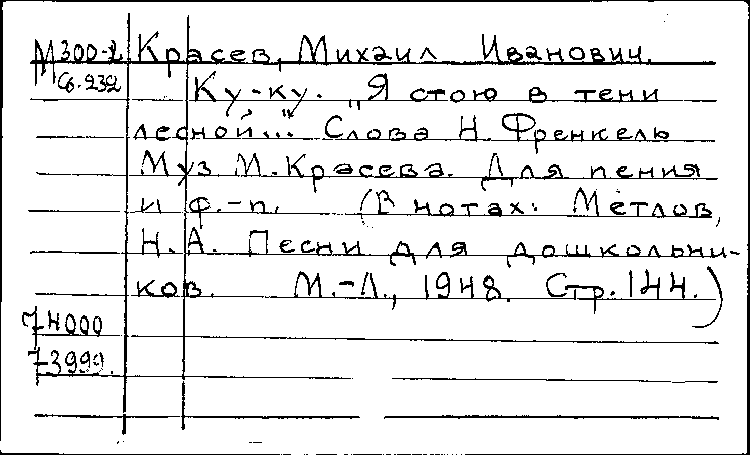 М 300-2 Красев, Михаил Иванович.
Сб. 232 Ку-ку. „Я стою в тени
лесной..." Слова Н. Френкель
Муз М. Красева. Для пения
и ф.-п. (В нотах: Метлов,
Н.А. Песни для дошкольни-
ков. М.-Л., 1948. Стр. 144.)
74000
73999.